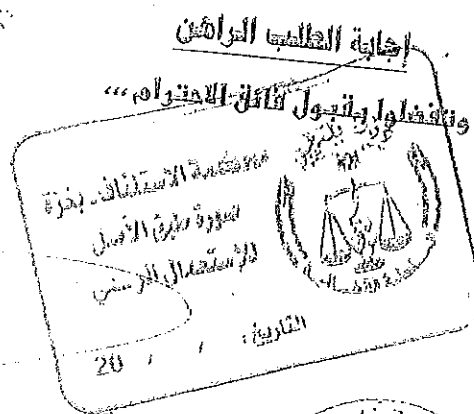 إجابة الطلب الراهن
وتفضلوا بقبول فائق الاحترام،،،
محكمة الاستئناف بغزة
صورة طبق الأصل
للإستعمال الرسمي
التاريخ: / / 20